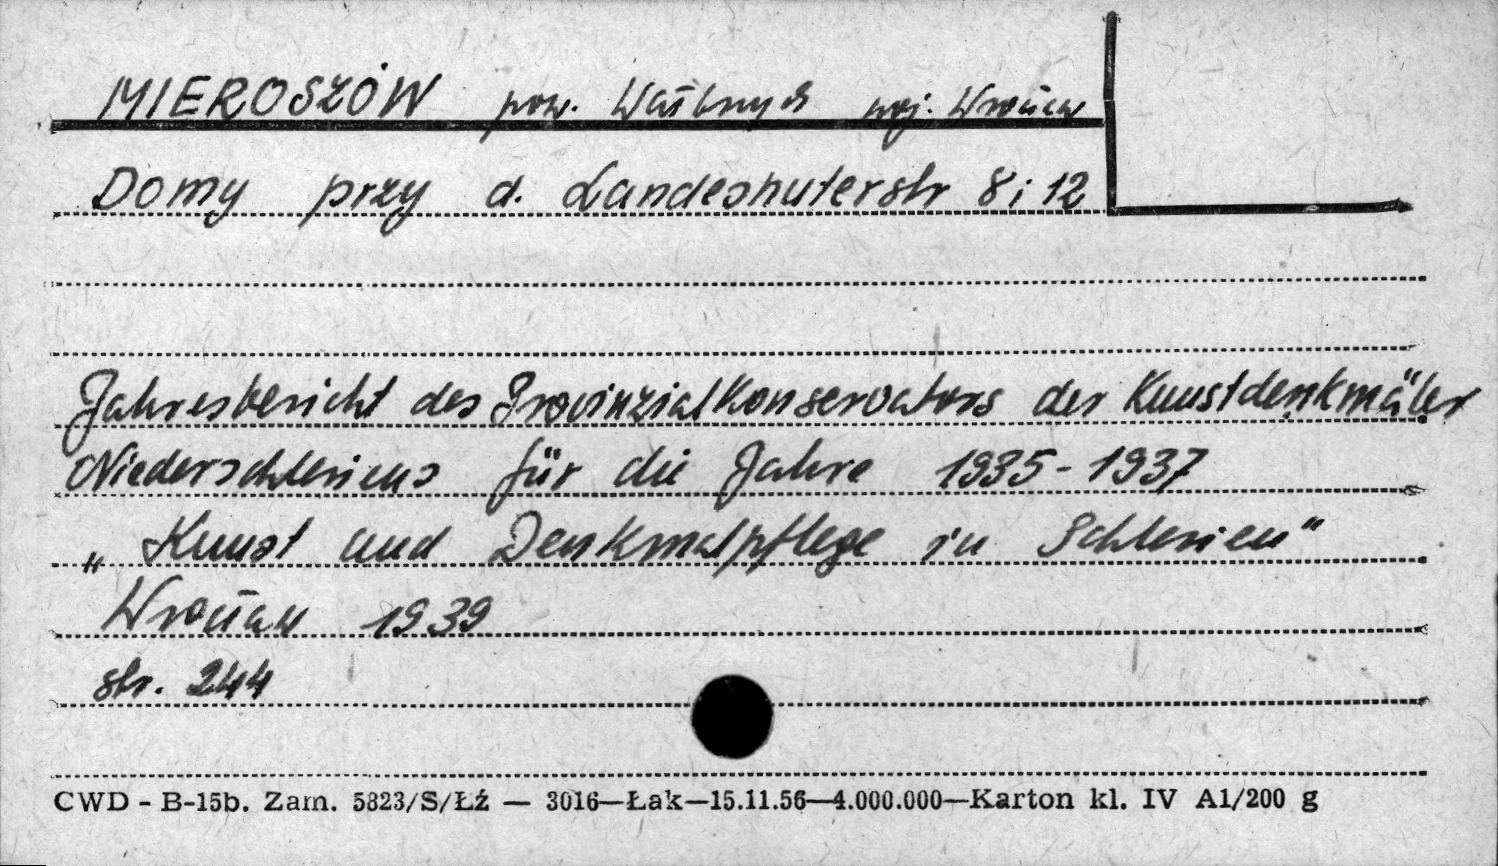 MIEROSZÓW pow. Wałbrzych woj. Wrocław
Domy przy d. Landeshuterstr 8 i 12
Jahresbericht des Provinzialkonservators der Kunstdenkmäler
Niederschlesiens für die Jahre 1935-1937
„Kunst und Denkmalpflege in Schlesien"
Wrocław 1939
str. 244
CWD - B-15b. Zam. 5823/S/Łź — 3016—Łak—15.11.56—4.000.000—Karton kl. IV A1/200 g